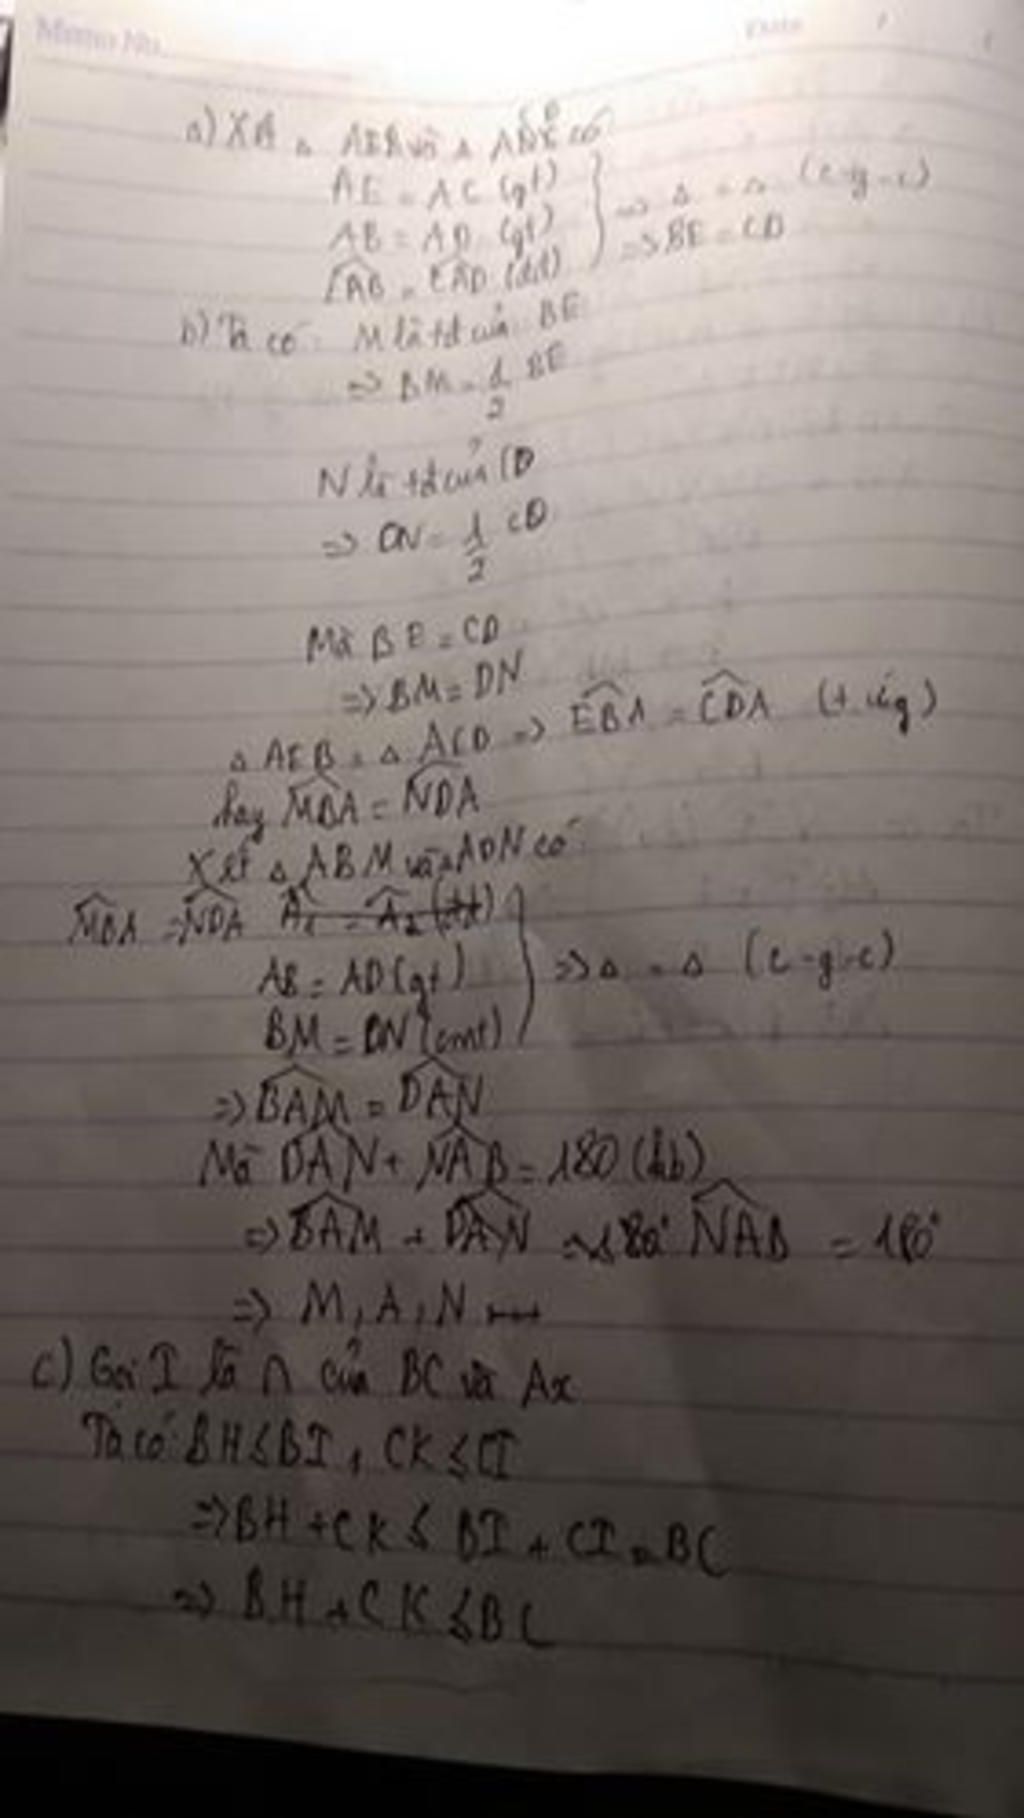 Memo No.
Date / /
a) Xét Δ AEB và Δ ADC có
AE = AC (gt)
AB = AD (gt)
EAB = CAD (dd)
} => Δ = Δ (c-g-c)
=> BE = CD
b) Ta có: M là td của BE
=> BM = 1/2 BE
N là td của CD
=> DN = 1/2 CD
Mà BE = CD
=> BM = DN
Δ AEB = Δ ACD => EBA = CDA (t ứg)
hay MBA = NDA
Xét Δ ABM và Δ ADN có:
MBA = NDA
AB = AD (gt)
BM = DN (cmt)
} => Δ = Δ (c-g-c)
=> BAM = DAN
Mà DAN + NAB = 180 (kb)
=> BAM + NAB = 180°
=> M, A, N
c) Gọi I là ∩ của BC và Ax
Ta có BH ≤ BI, CK ≤ CI
=> BH + CK ≤ BI + CI = BC
=> BH + CK ≤ BC